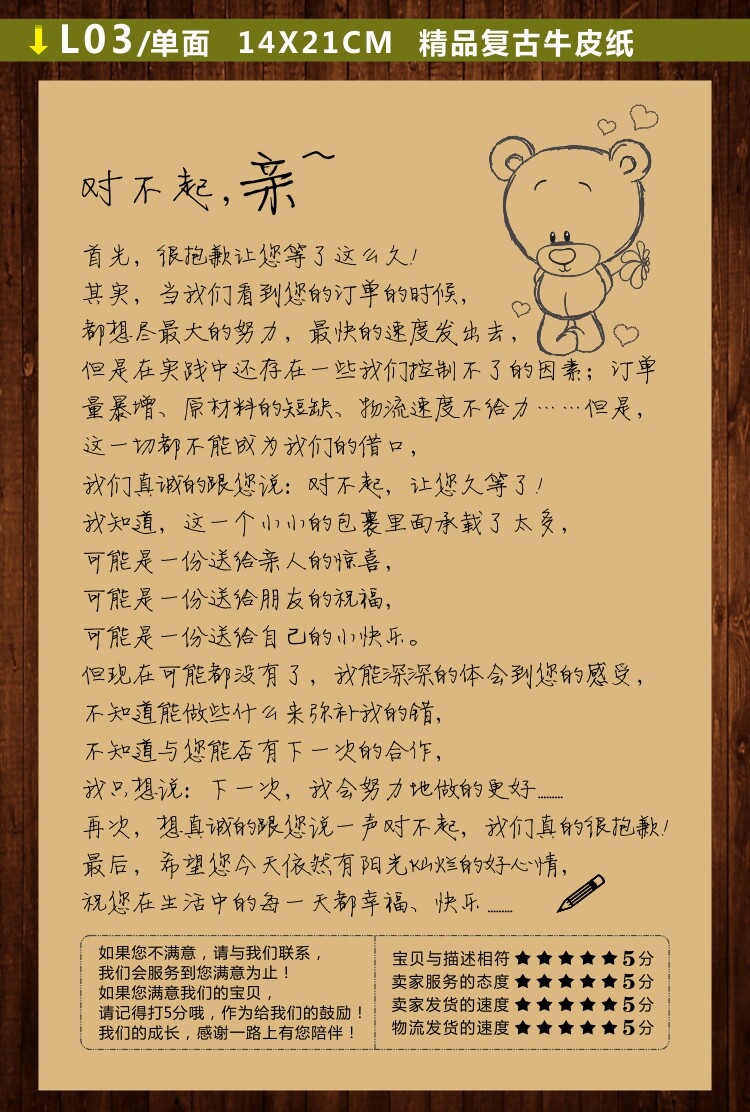 L03/单面 14X21CM 精品复古牛皮纸
对不起,亲~
首先，很抱歉让您等了这么久!
其实，当我们看到您的订单的时候，
都想尽最大的努力，最快的速度发出去，
但是在实践中还存在一些我们控制不了的因素；订单
量暴增、原材料的短缺、物流速度不给力……但是，
这一切都不能成为我们的借口，
我们真诚的跟您说：对不起，让您久等了!
我知道，这一个小小的包裹里面承载了太多，
可能是一份送给亲人的惊喜，
可能是一份送给朋友的祝福，
可能是一份送给自己的小快乐。
但现在可能都没有了，我能深深的体会到您的感受，
不知道能做些什么来弥补我的错，
不知道与您能否有下一次的合作，
我只想说：下一次，我会努力地做的更好……
再次，想真诚的跟您说一声对不起，我们真的很抱歉!
最后，希望您今天依然有阳光灿烂的好心情，
祝您在生活中的每一天都幸福、快乐……
如果您不满意，请与我们联系，
我们会服务到您满意为止！
如果您满意我们的宝贝，
请记得打5分哦，作为给我们的鼓励！
我们的成长，感谢一路上有您陪伴！
宝贝与描述相符★★★★★5分
卖家服务的态度★★★★★5分
卖家发货的速度★★★★★5分
物流发货的速度★★★★★5分